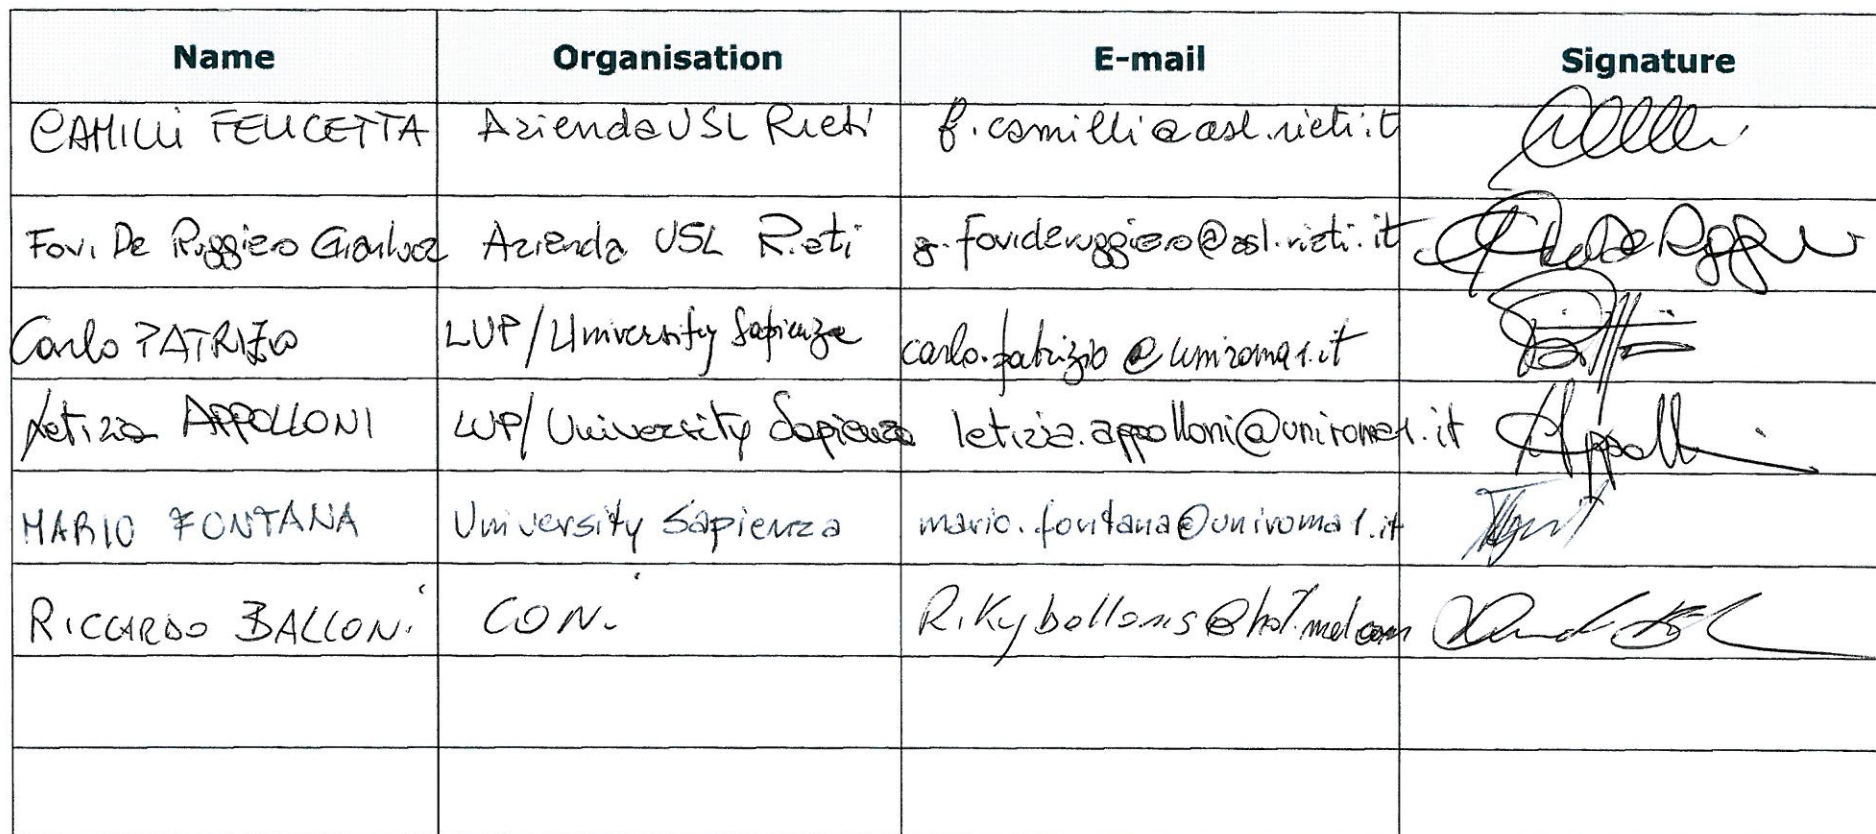 Name Organisation E-mail Signature
CAMILLI FELICETTA Azienda USL Rieti f.camilli@asl.rieti.it
Fovi De Ruggiero Gianluca Azienda USL Rieti g.fovideruggiero@asl.rieti.it
Carlo PATRIZIO LUP/University Sapienza carlo.patrizio@uniroma1.it
Letizia APPOLLONI LUP/University Sapienza letizia.appolloni@uniroma1.it
MARIO FONTANA University Sapienza mario.fontana@uniroma1.it
RICCARDO BALLONI CONI